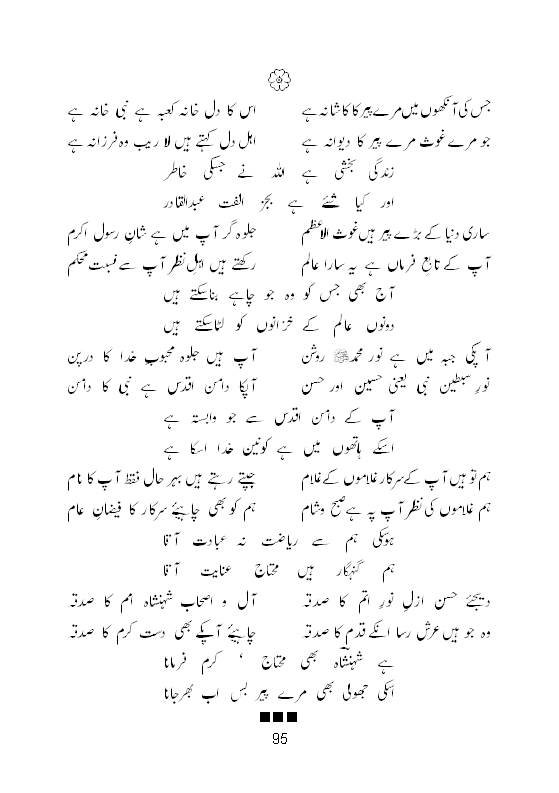 جس کی آنکھوں میں مرے پیر کا کاشانہ ہے اس کا دل خانہ کعبہ ہے نبی خانہ ہے
جو مرے غوث مرے پیر کا دیوانہ ہے اہل دل کہتے ہیں لا ریب وہ فرزانہ ہے
زندگی بخشی ہے اللہ نے جسکی خاطر
اور کیا شئے ہے بجز الفت عبدالقادر
ساری دنیا کے بڑے پیر ہیں غوث الاعظم جلوہ گر آپ میں ہے شانِ رسول اکرم
آپ کے تابع فرماں ہے یہ سارا عالم رکھتے ہیں اہل نظر آپ سے نسبت محکم
آج بھی جس کو وہ جو چاہے بناسکتے ہیں
دونوں عالم کے خزانوں کو لٹاسکتے ہیں
آپکی جبہ میں ہے نور محمدﷺ روشن آپ ہیں جلوہ محبوب خدا کا درپن
نورِ سبطین نبی یعنی حسین اور حسن آپکا دامن اقدس ہے نبی کا دامن
آپ کے دامن اقدس سے جو وابستہ ہے
اسکے ہاتھوں میں ہے کونین خدا اسکا ہے
ہم تو ہیں آپ کے سرکار غلاموں کے غلام جپتے رہتے ہیں بہر حال فقط آپ کا نام
ہم غلاموں کی نظر آپ پہ ہے صبح و شام ہم کو بھی چاہیئے سرکار کا فیضانِ عام
ہوسکی ہم سے ریاضت نہ عبادت آقا
ہم گنہگار ہیں محتاج عنایت آقا
دیجئے حسن ازل نورِ اتم کا صدقہ آل و اصحاب شہنشاہ امم کا صدقہ
وہ جو ہیں عرش رسا انکے قدم کا صدقہ چاہیئے آپکے بھی دست کرم کا صدقہ
ہے شہنشاہ بھی محتاج ‘ کرم فرمانا
اسکی جھولی بھی مرے پیر بس اب بھرجانا
95